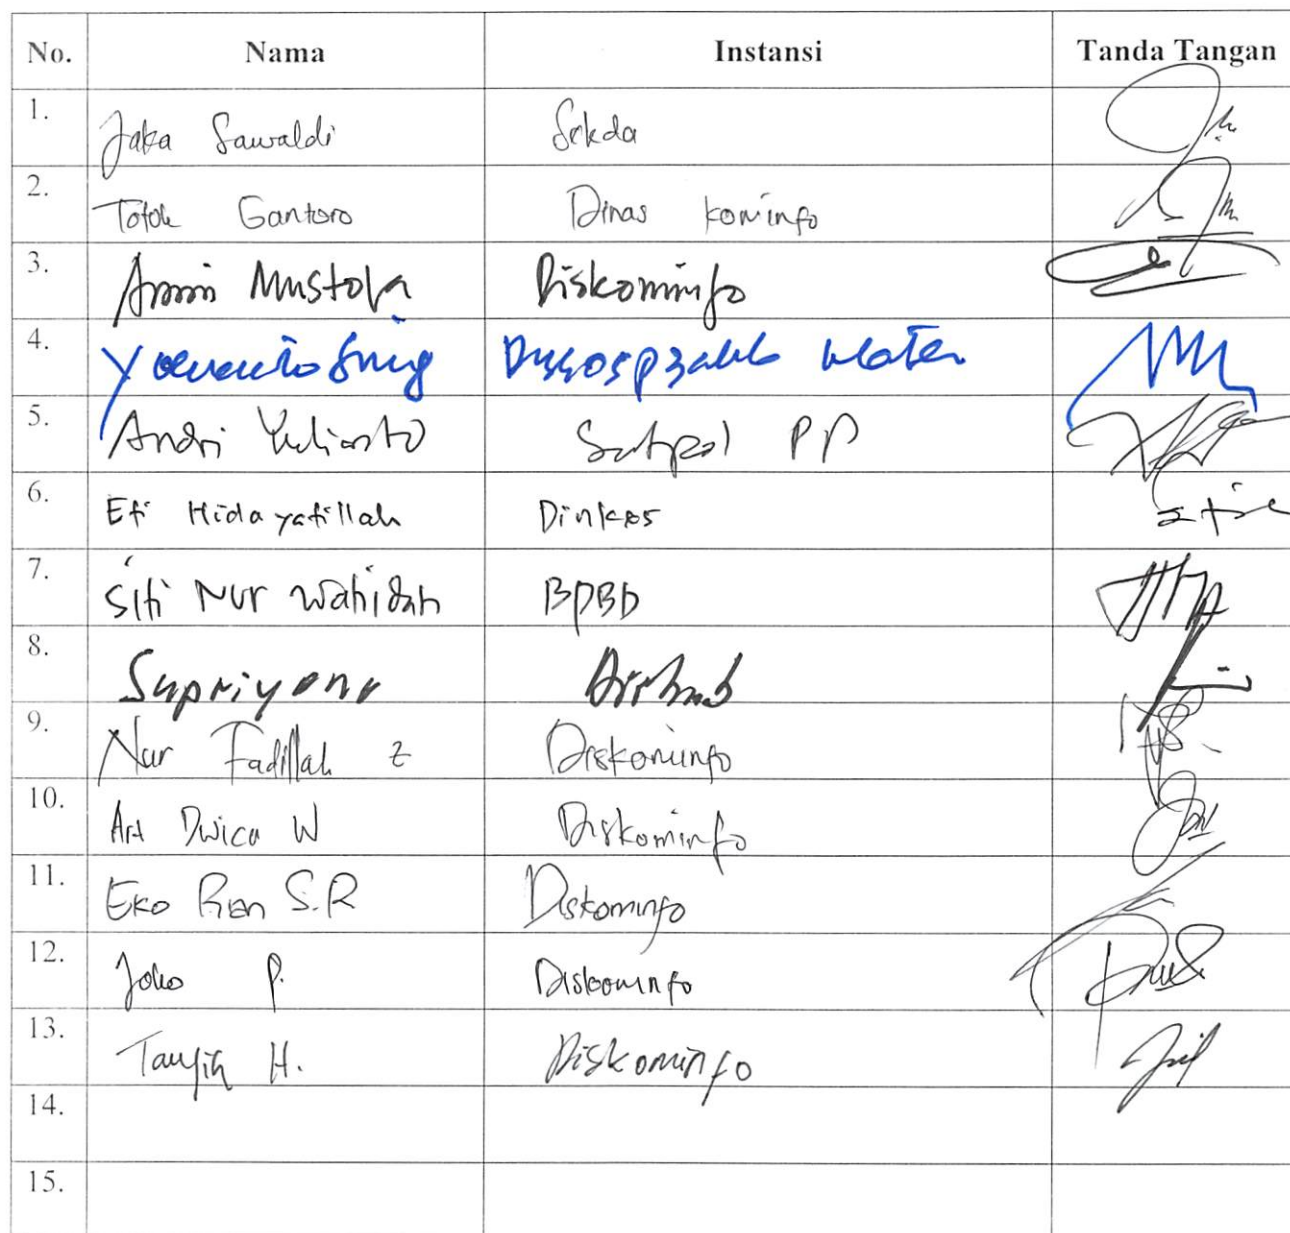 No. Nama Instansi Tanda Tangan
1. Jaka Sawaldi Sekda
2. Totok Gantoro Dinas Kominfo
3. Amin Mustofa Diskominfo
4.
5. Andri Yulianto Satpol PP
6. Efi Hidayatillah Dinkes
7. Siti Nur Wahidah BPBD
8. Supriyono Dishub
9. Nur Fadillah Z Diskominfo
10. Ari Dwica W Diskominfo
11. Eko Rian S.R Diskominfo
12. Joko P. Diskominfo
13. Taufiq H. Diskominfo
14.
15.